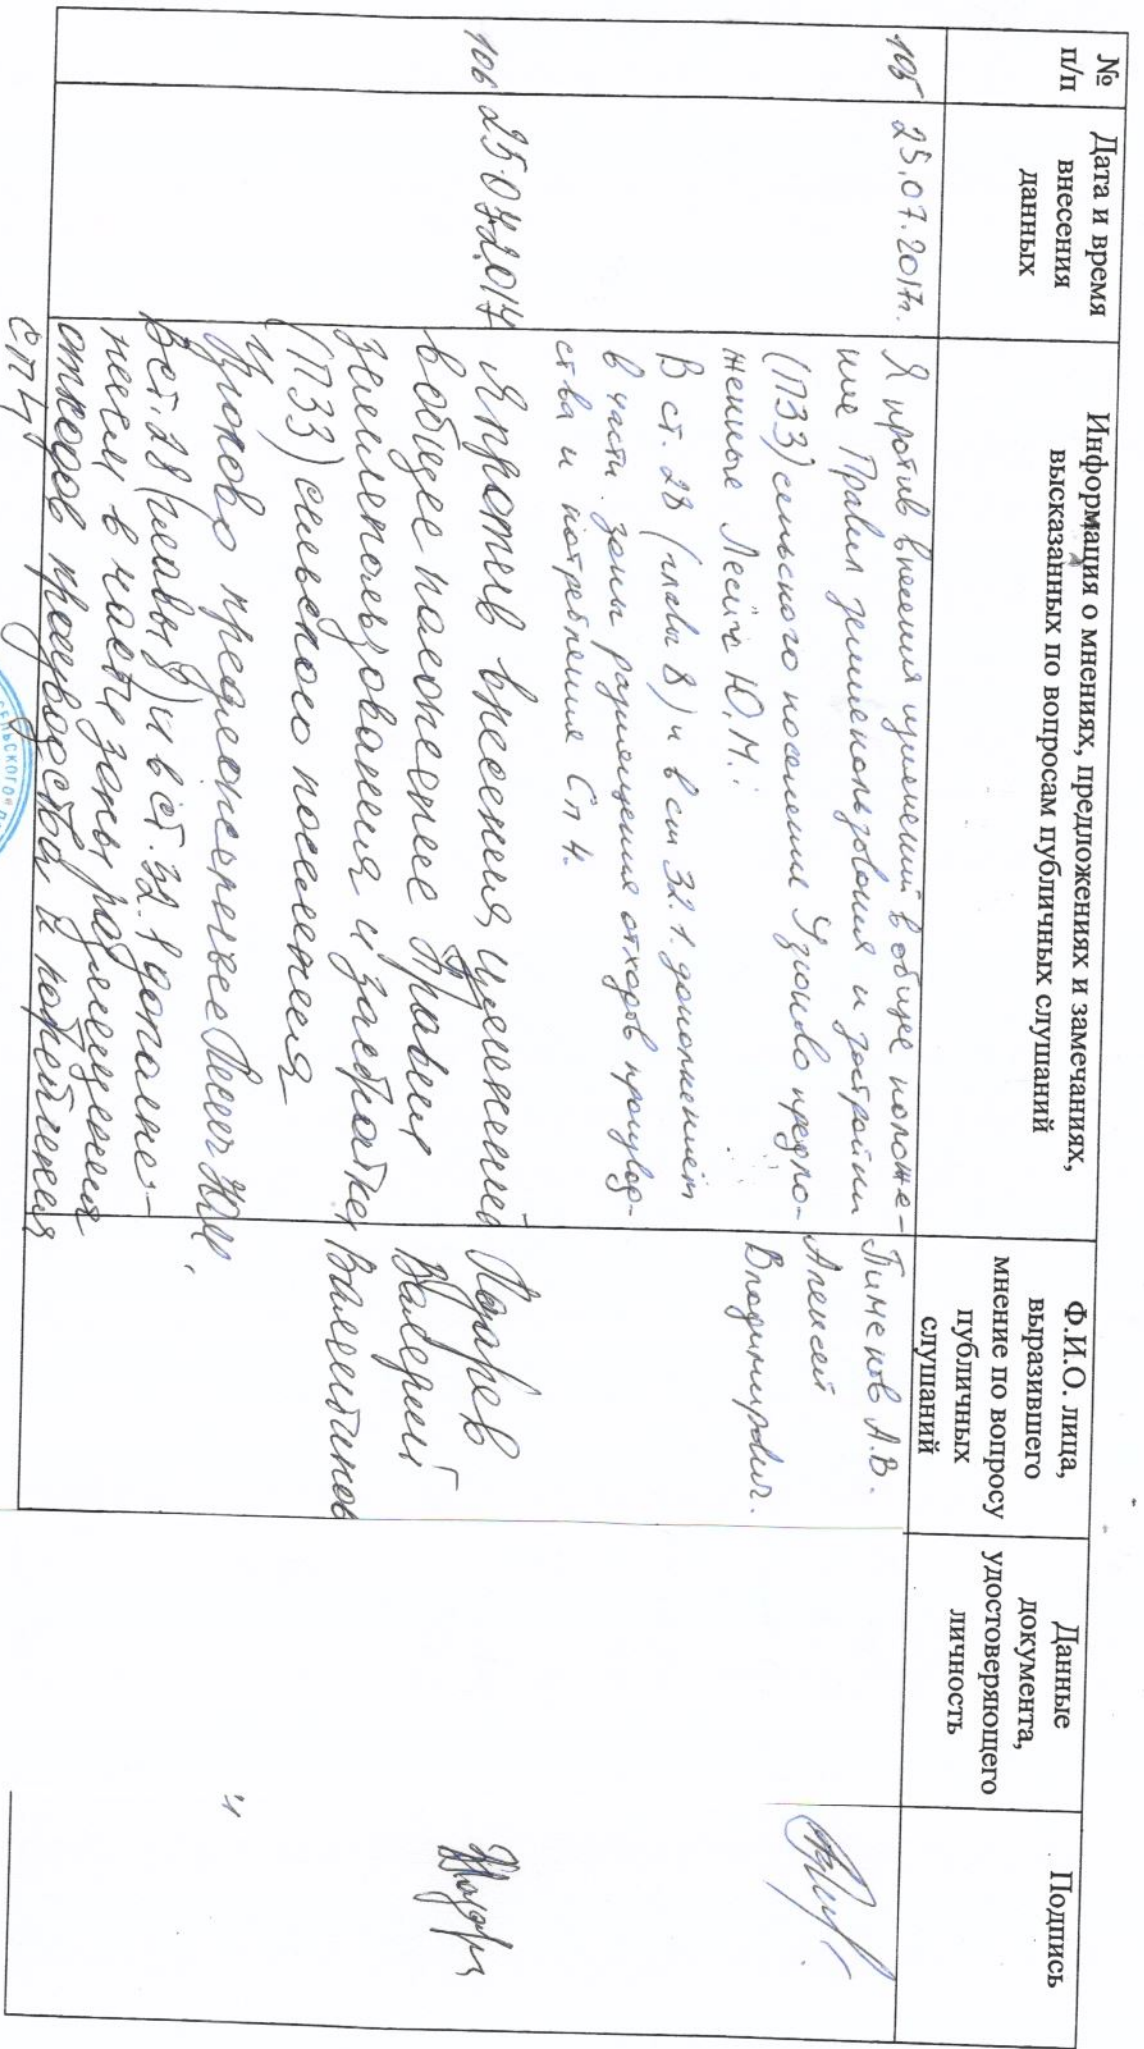 №
п/п
Дата и время
внесения
данных
Информация о мнениях, предложениях и замечаниях,
высказанных по вопросам публичных слушаний
Ф.И.О. лица,
выразившего
мнение по вопросу
публичных
слушаний
Данные
документа,
удостоверяющего
личность
Подпись
105
25.07.2017г.
Я против внесения изменений в общее положе-
ние Правил землепользования и застройки
(ПЗЗ) сельского поселения Узюково предло-
женные Лесик Ю.М.:
В ст. 28 (главы 8) и в ст 32.1. дополнением
в части зоны размещения отходов производ-
ства и потребления Сп 4.
Пименов А.В.
Алексей
Владимирович.
106
25.07.2017
Я против внесения изменений
в общее положение Правил
землепользования и застройки
(ПЗЗ) сельского поселения
Узюково предложенные Лесик Ю.М.
В ст. 28 (главы 8) и в ст. 32.1 дополне-
нием в части зоны размещения
отходов производства и потребления
СП4
Валерий
СЕЛЬСКОГО